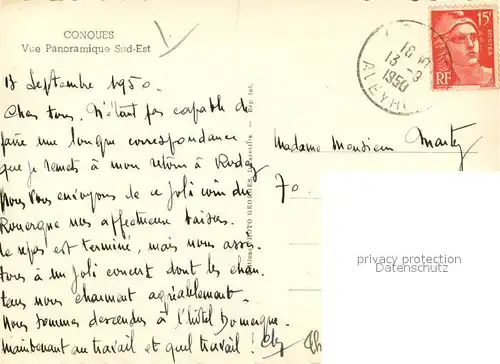 CONQUES
Vue Panoramique Sud-Est
13 Septembre 1950.
Chers tous. N'étant pas capable de
faire une longue correspondance
que je remets à mon retour à Rodez
Nous vous envoyons de ce joli coin du
Rouergue nos affectueux baisers.
Le repas est terminé, mais nous assis
tons à un joli concert dont les chan
teurs nous charment agréablement.
Nous sommes descendus à l'hôtel Domergue.
Maintenant au travail et quel travail !
PHOTO GEORGES
15F
POSTES
RF
13 -9
1950
AVEYRON
Madame Monsieur Marty
70
privacy protection
Datenschutz